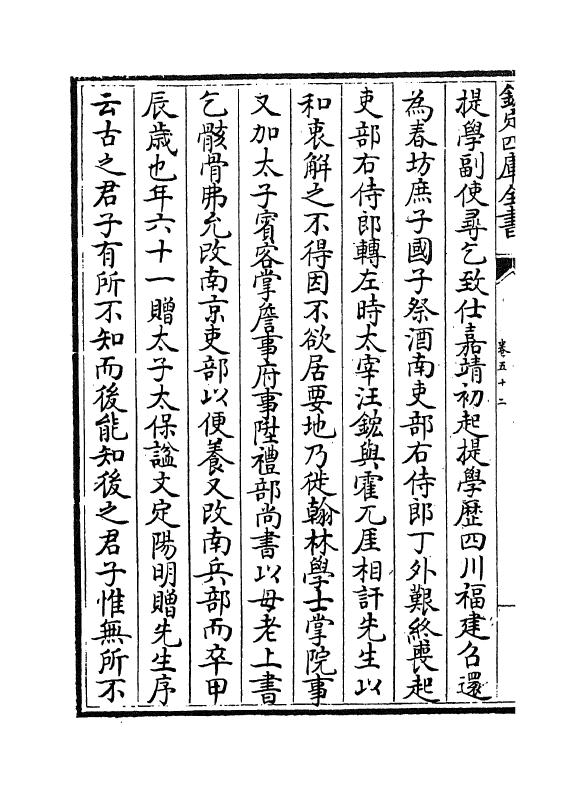 欽定四庫全書
卷五十二
提學副使尋乞致仕嘉靖初起提學歷四川福建召還
為春坊庶子國子祭酒南吏部右侍郎丁外艱終喪起
吏部右侍郎轉左時太宰汪鋐與霍兀厓相訐先生以
和衷解之不得因不欲居要地乃徙翰林學士掌院事
又加太子賓客掌詹事府事陞禮部尚書以母老上書
乞骸骨弗允改南京吏部以便養又改南兵部而卒甲
辰歲也年六十一贈太子太保諡文定陽明贈先生序
云古之君子有所不知而後能知後之君子惟無所不